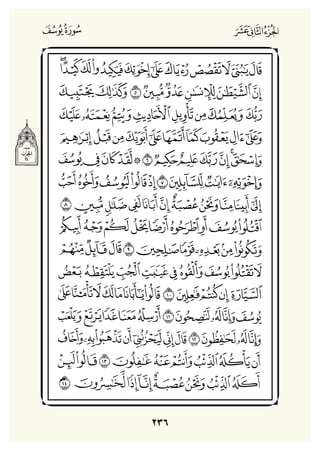 الجزء الثاني عشر سورة يوسف
قال يبني لا تقصص رءياك على إخوتك فيكيدوا لك كيدا
إن الشيطن للإنسن عدو مبين ٥ وكذلك يجتبيك
ربك ويعلمك من تأويل الأحاديث ويتم نعمته عليك
وعلى ءال يعقوب كما أتمها على أبويك من قبل إبرهيم
وإسحق إن ربك عليم حكيم ٦ ۞ لقد كان في يوسف
وإخوته ءايت للسائلين ٧ إذ قالوا ليوسف وأخوه أحب
إلى أبينا منا ونحن عصبة إن أبانا لفي ضلل مبين ٨
اقتلوا يوسف أو اطرحوه أرضا يخل لكم وجه أبيكم
وتكونوا من بعده قوما صلحين ٩ قال قائل منهم
لا تقتلوا يوسف وألقوه في غيبت الجب يلتقطه بعض
السيارة إن كنتم فعلين ١٠ قالوا يأبانا ما لك لا تأمنا على
يوسف وإنا له لنصحون ١١ أرسله معنا غدا يرتع ويلعب
وإنا له لحفظون ١٢ قال إني ليحزنني أن تذهبوا به وأخاف
أن يأكله الذئب وأنتم عنه غفلون ١٣ قالوا لئن
أكله الذئب ونحن عصبة إنا إذا لخسرون ١٤
٢٣٦